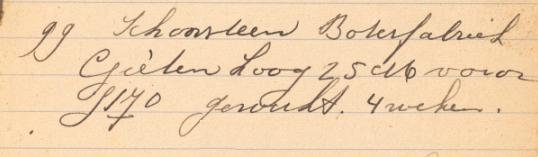 gg Schoorsteen Boterfabriek
Gieten hoog 25 M voor
f 170 gevoucht. 4 weken.